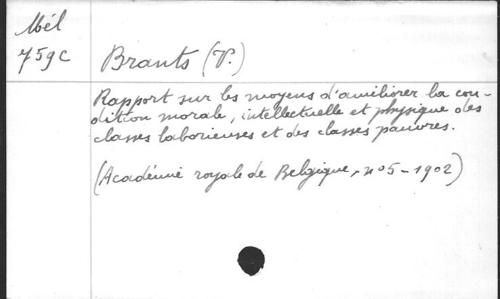 Mél
759C
Brants (V.)
Rapport sur les moyens d'améliorer la con-
dition morale, intellectuelle et physique des
classes laborieuses et des classes pauvres.
(Académie royale de Belgique, no 5 - 1902)